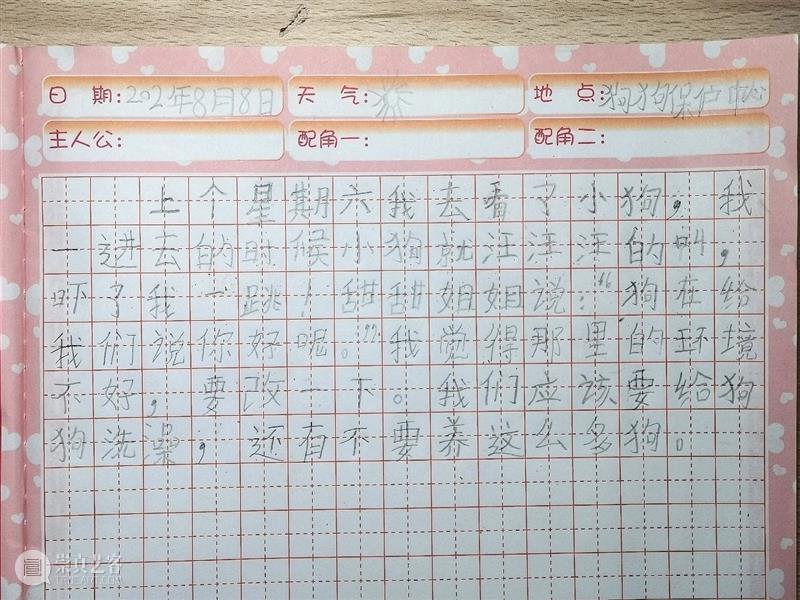 日 期：202年8月8日 天 气： 地 点：狗狗保护中心
主人公： 配角一： 配角二：
上个星期六我去看了小狗，我
一进去的时候小狗就汪汪汪的叫，
吓了我一跳！甜甜姐姐说：“狗在给
我们说你好呢。”我觉得那里的环境
不好，要改一下。我们应该要给狗
狗洗澡，还有不要养这么多狗。
崇真艺客